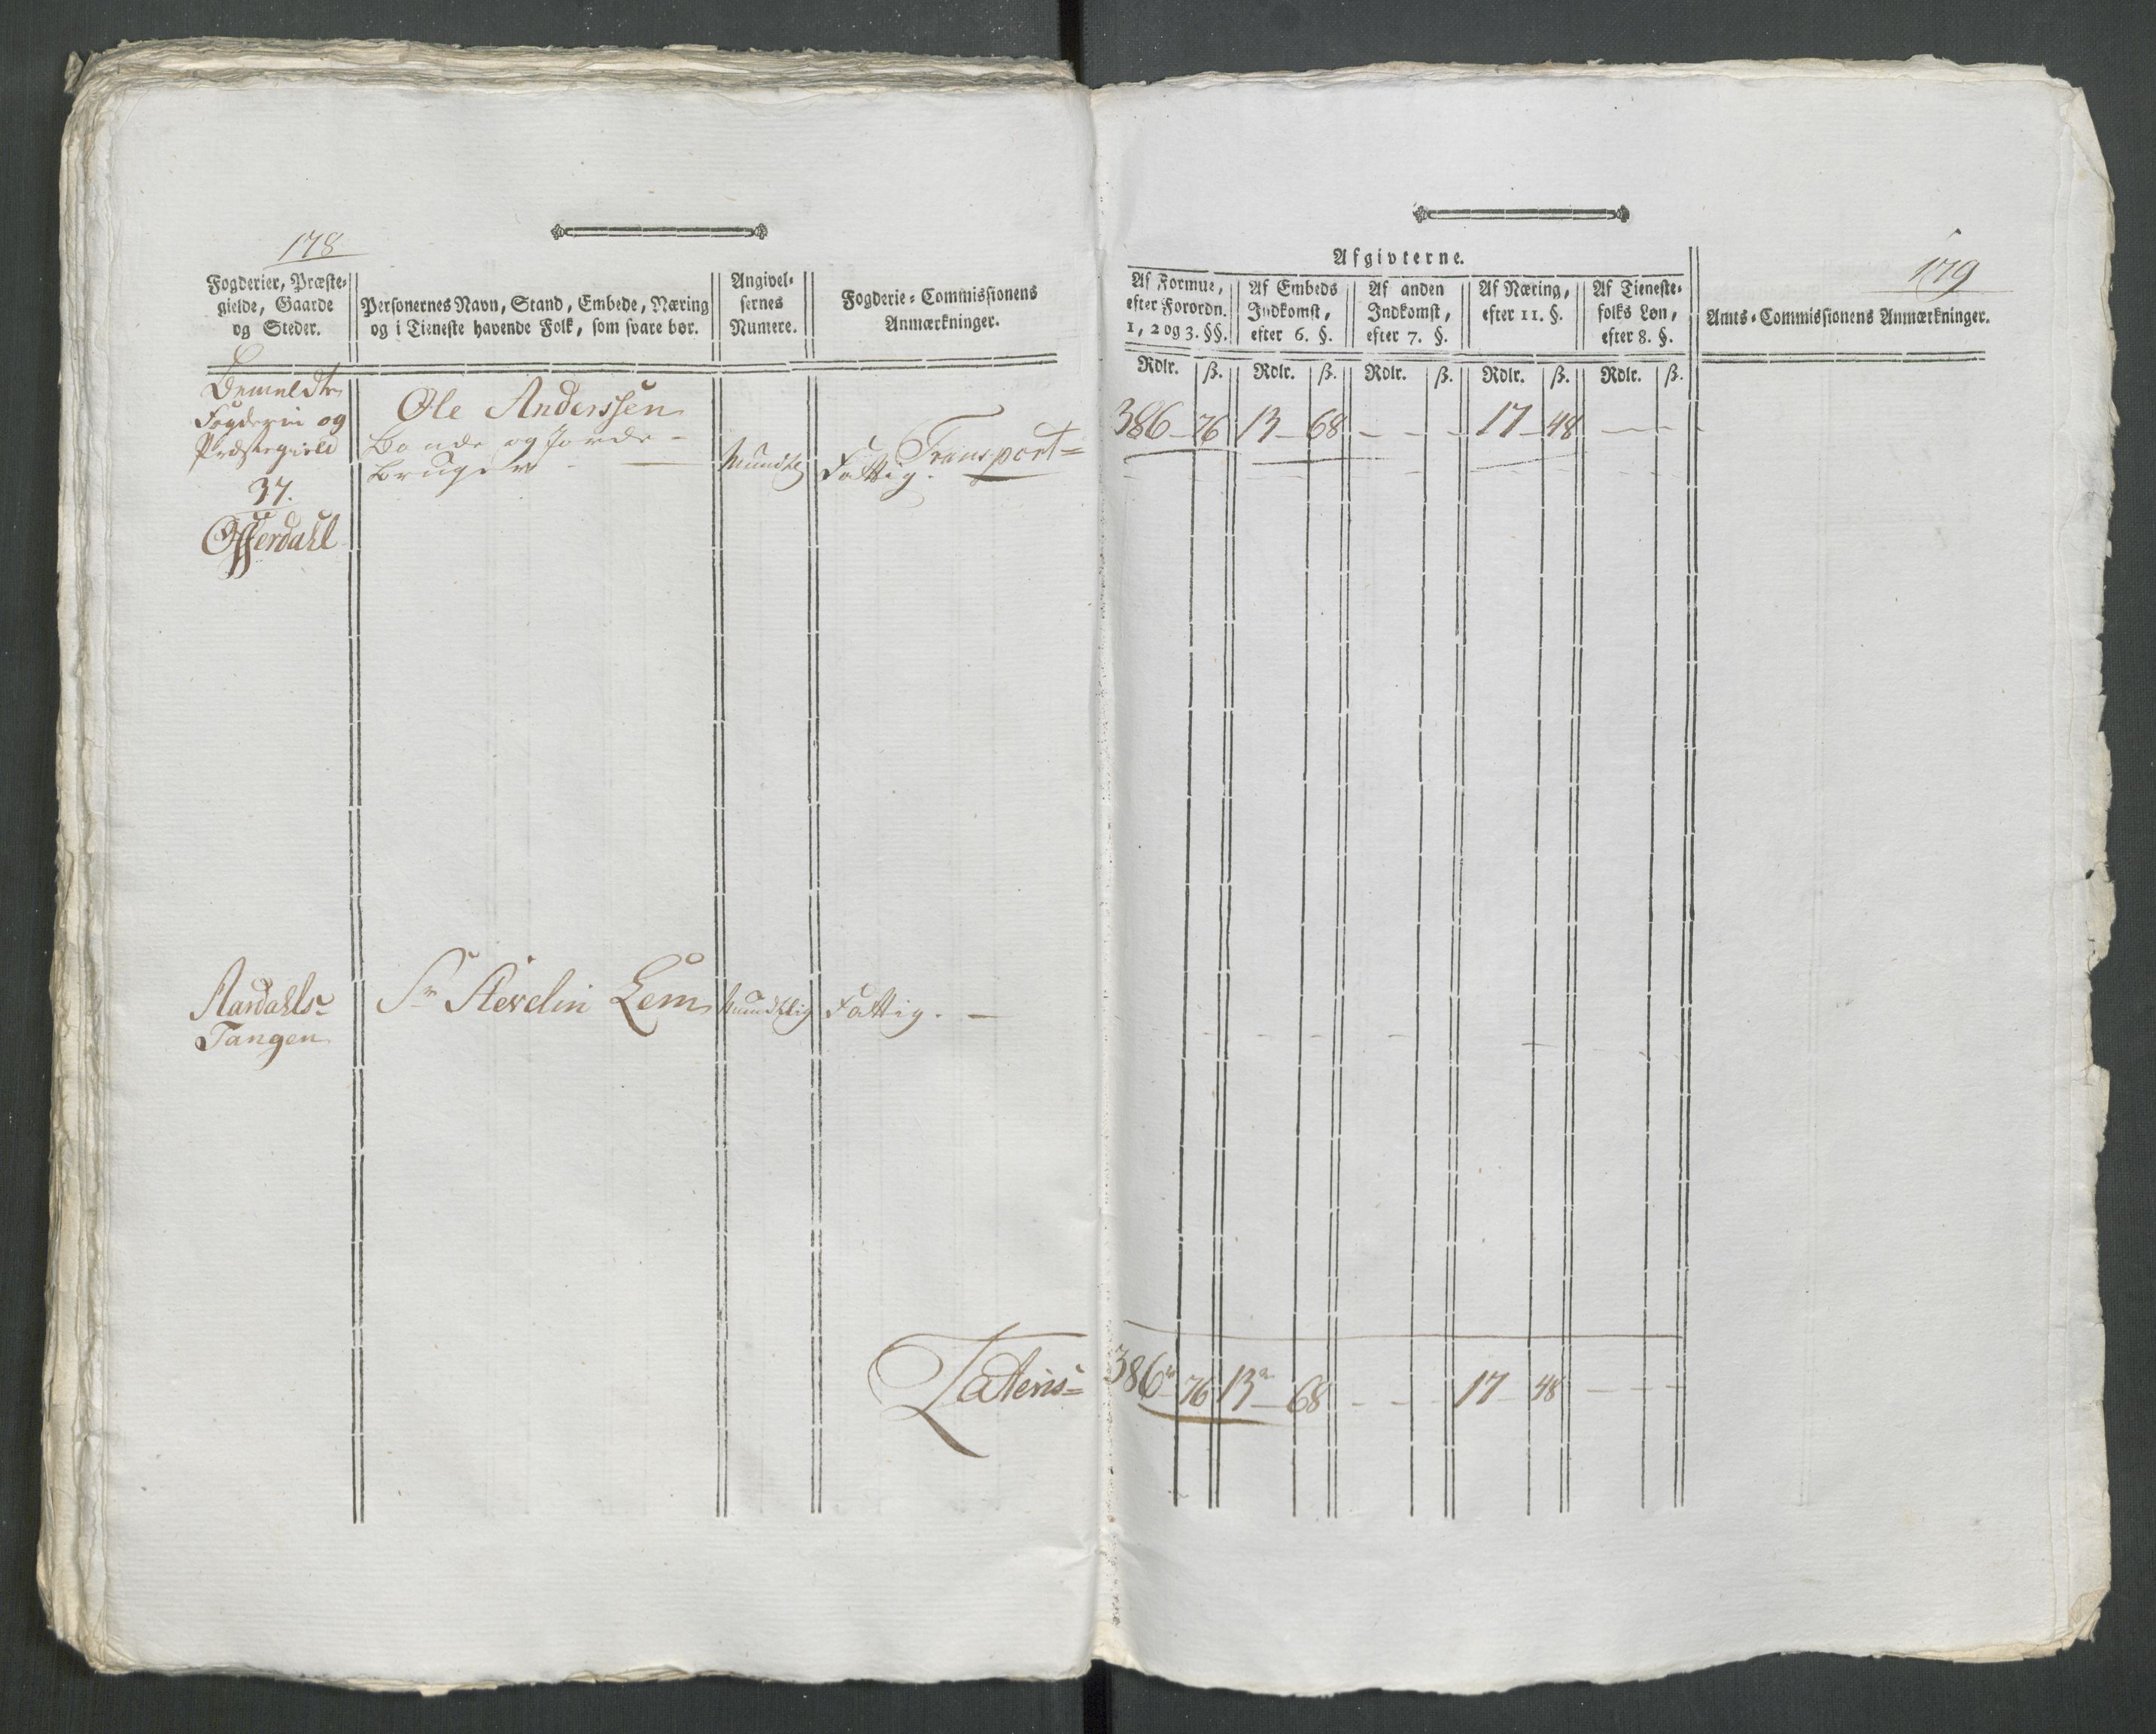 178
Fogderier, Præste-
gielde, Gaarde
og Steder.
Personernes Navn, Stand, Embede, Næring
og i Tieneste havende Folk, som svare bør.
Angivel-
sernes
Numere.
Fogderie-Commissionens
Anmærkninger.
Bemeldte
Fogderie og
Præstegield
37.
Offerdahl
Ole Anderssen
Bonde og Jorde-
bruger -
Mundtl
Fattig.
Transport=
Aardahls-
Tangen
Sr Stevelin Lem
Mundtlig
Fattig. —
Latens=
179
Afgivterne.
Af Formue,
efter Forordn.
1, 2 og 3. §§.
Af Embeds
Indkomst,
efter 6. §.
Af anden
Indkomst,
efter 7. §.
Af Næring,
efter 11. §.
Af Tieneste-
folks Løn,
efter 8. §.
Amts-Commissionens Anmærkninger.
Rdlr. ß. Rdlr. ß. Rdlr. ß. Rdlr. ß. Rdlr. ß.
386 - 76 13 - 68 - - - 17 - 48 - - -
386 76 13 68 - - - 17 48 - - -